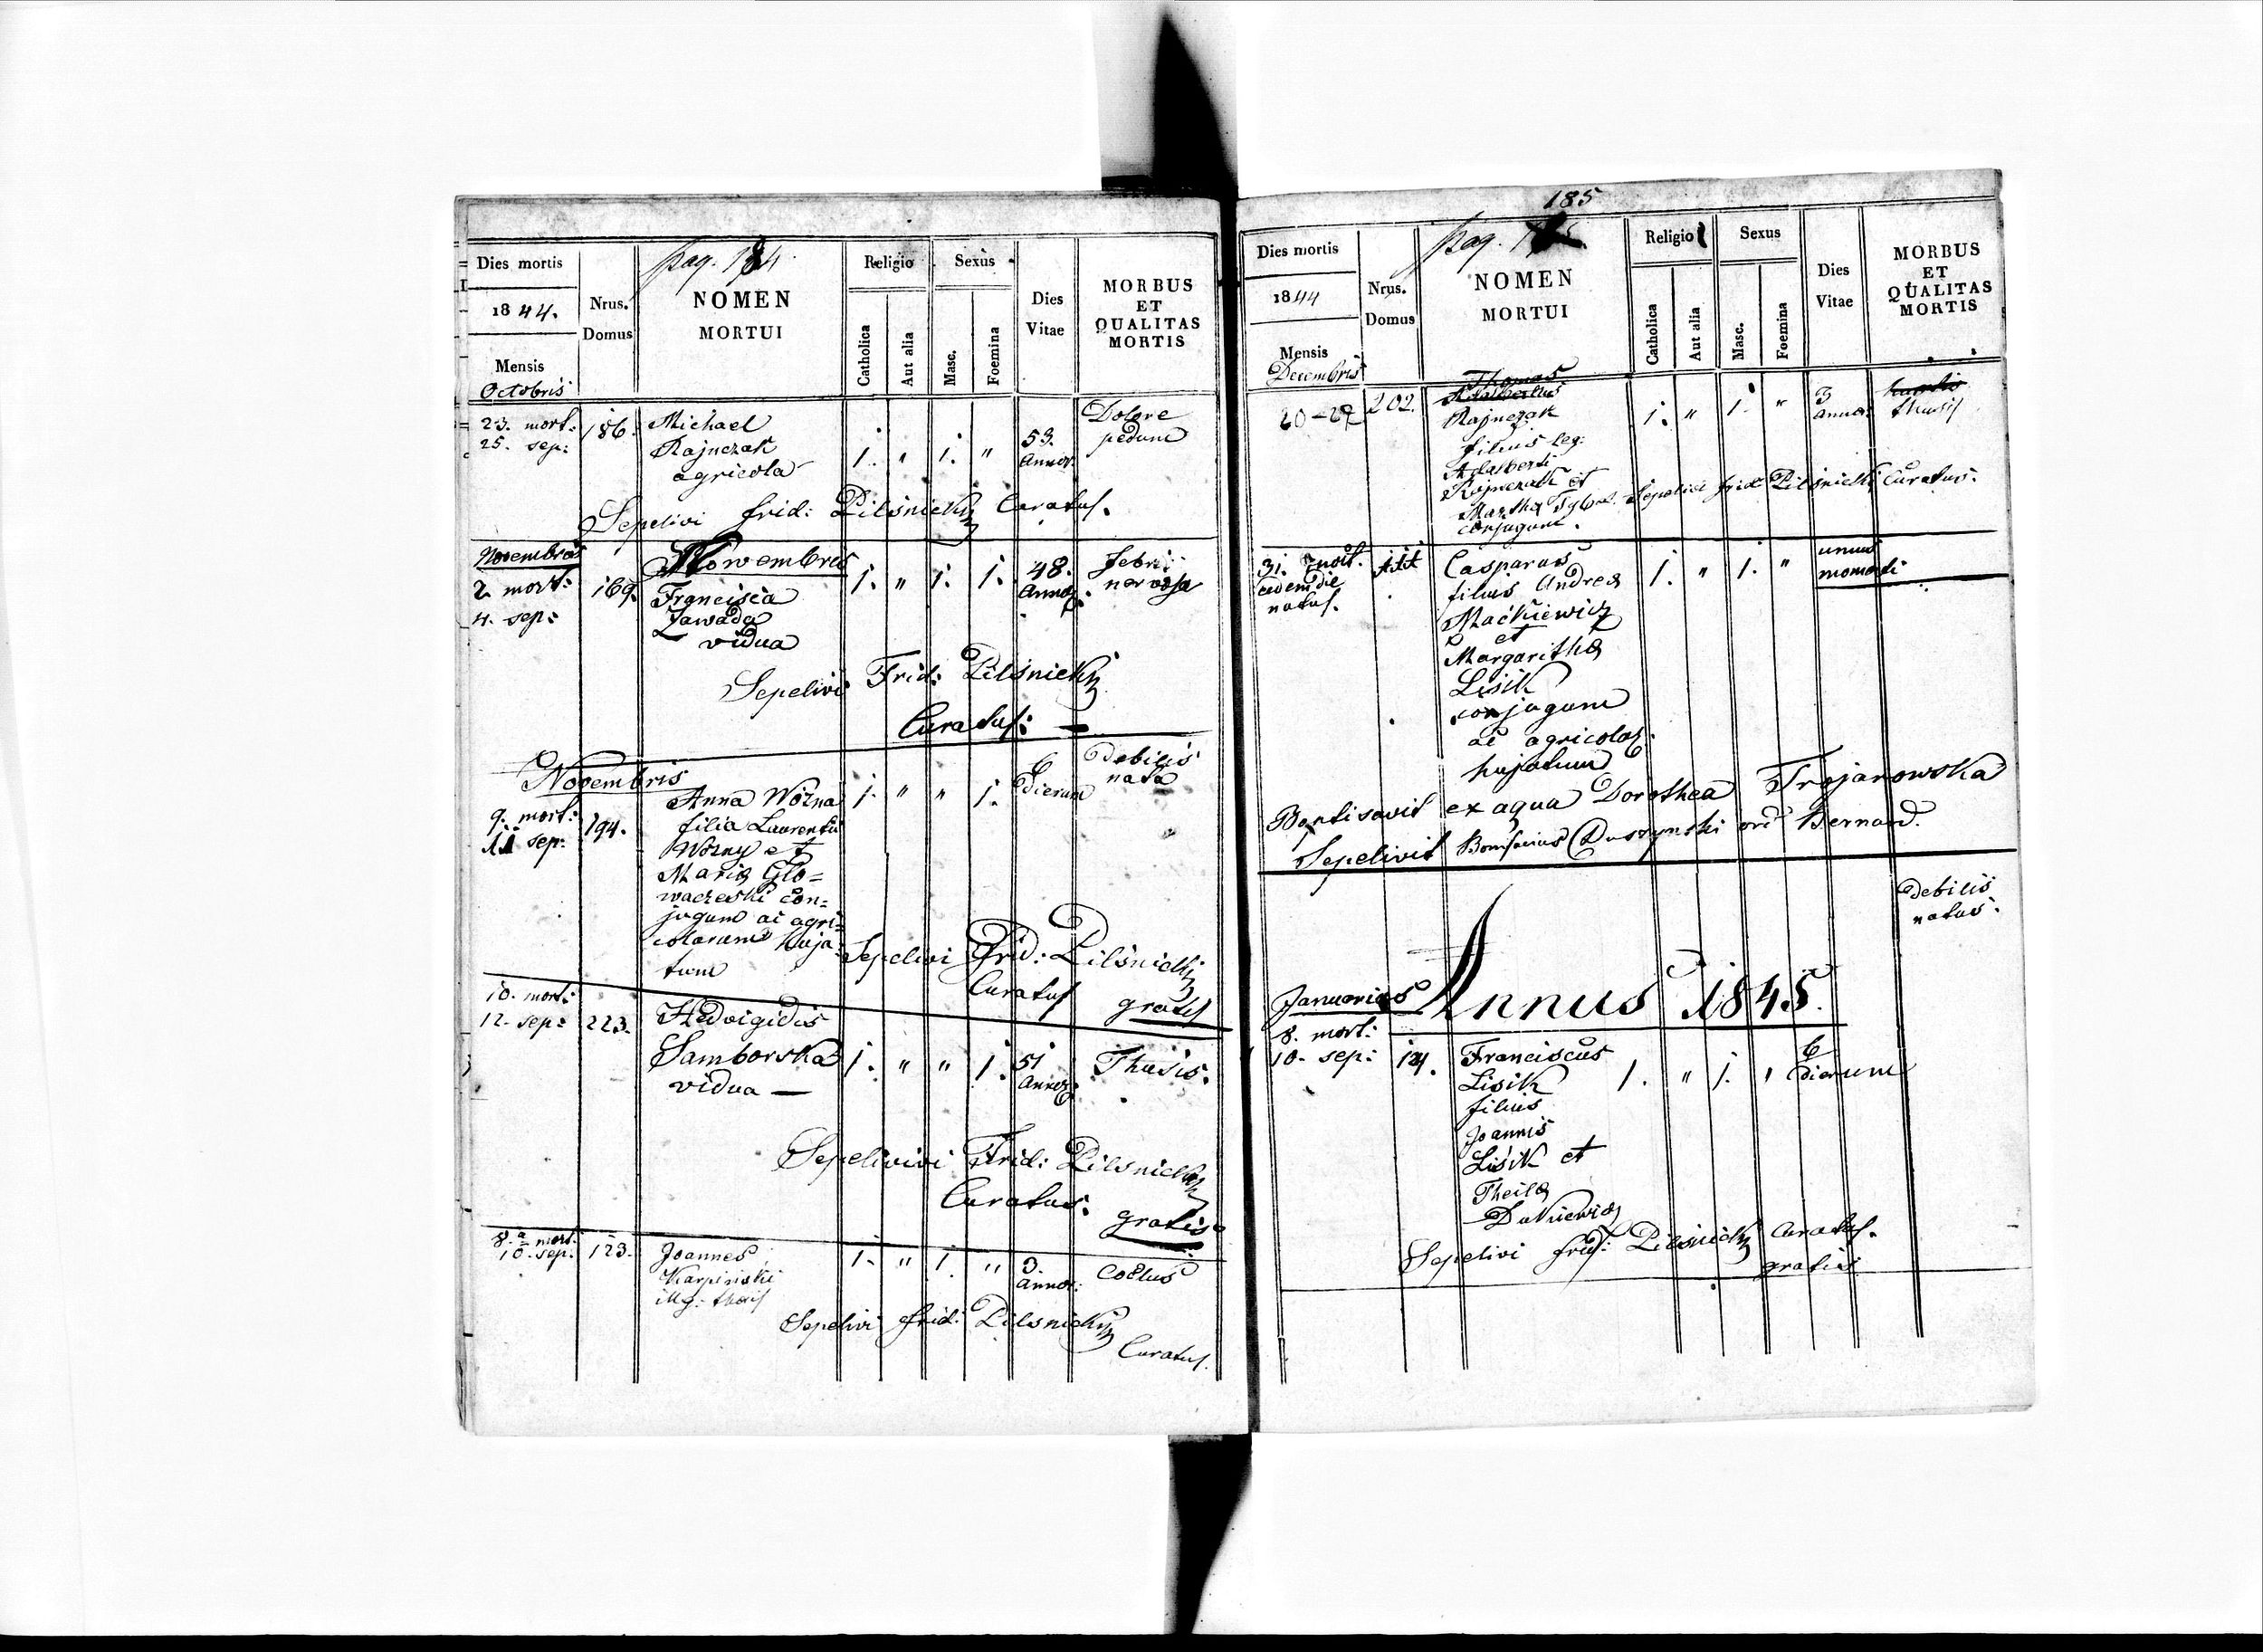 pag. 184.
Dies mortis
1844.
Mensis
Octobris
Nrus.
Domus
NOMEN
MORTUI
Religio
Catholica
Aut alia
Sexus
Masc.
Foemina
Dies
Vitae
MORBUS
ET
QUALITAS
MORTIS
23. mort:
25. sep:
186.
Michael
Rajnczak
agricola
1. " 1. "
53.
annor.
Dolore
pedum
Sepelivi frid: Pilsnicki Curatus.
Novembris
2. mort:
4. sep:
169.
Nowembris
Francisca
Zawada
vidua
1. " 1. 1.
48.
Annor.
febri
nervosa
Sepelivi Frid: Pilsnicki
Curatus:
Novembris
9. mort:
11 sep:
194.
Anna Wozna
filia Laurentii
Wozny et
Maria Glo=
waczeski con=
jugum ac agri=
colarum huja=
tum
1. " " 1.
6
dierum
Debilis
nata
Sepelivi Frid: Pilsnicki
Curatus
gratis
10. mort:
12. sep:
223.
Hedvigidis
Samborska
vidua —
1. " " 1.
51
annor.
Thusis.
Sepelivivi Frid: Pilsnicki
Curatus.
gratis
8. mort:
10. sep:
123.
Joannes
Karpinski
illg. thori
1. " 1. "
3.
annor.
Coctus
Sepelivi frid: Pilsnicki
Curatus.
185
pag.
Dies mortis
1844
Mensis
Decembris
Nrus.
Domus
NOMEN
MORTUI
Religio
Catholica
Aut alia
Sexus
Masc.
Foemina
Dies
Vitae
MORBUS
ET
QUALITAS
MORTIS
20-22
202.
Thomas
Adalbertus
Rajnczak
filius leg:
Adalberti
Rajnczak et
Martha
conjugum.
1. " 1. "
3
annor.
thusis
Sepelivi frid: Pilsnicki Curatus.
31.
eadem die
natus.
Casparus
filius Andrea
Maćkiewicz
et
Margaritha
Lisik
conjugum
ac agricolar.
hujatum
1. " 1. "
unius
momenti
Baptisavit ex aqua Dorothea Trojanowska
Sepelivit Bonifacius Duszynski ord Bernard.
Debilis
natus.
Annus 1845.
Januarius
8. mort:
10. sep:
Franciscus
Lisik
filius
Joannis
Lisik et
1. " 1. "
6
dierum
Sepelivi frid: Pilsnicki Curatus.
gratis